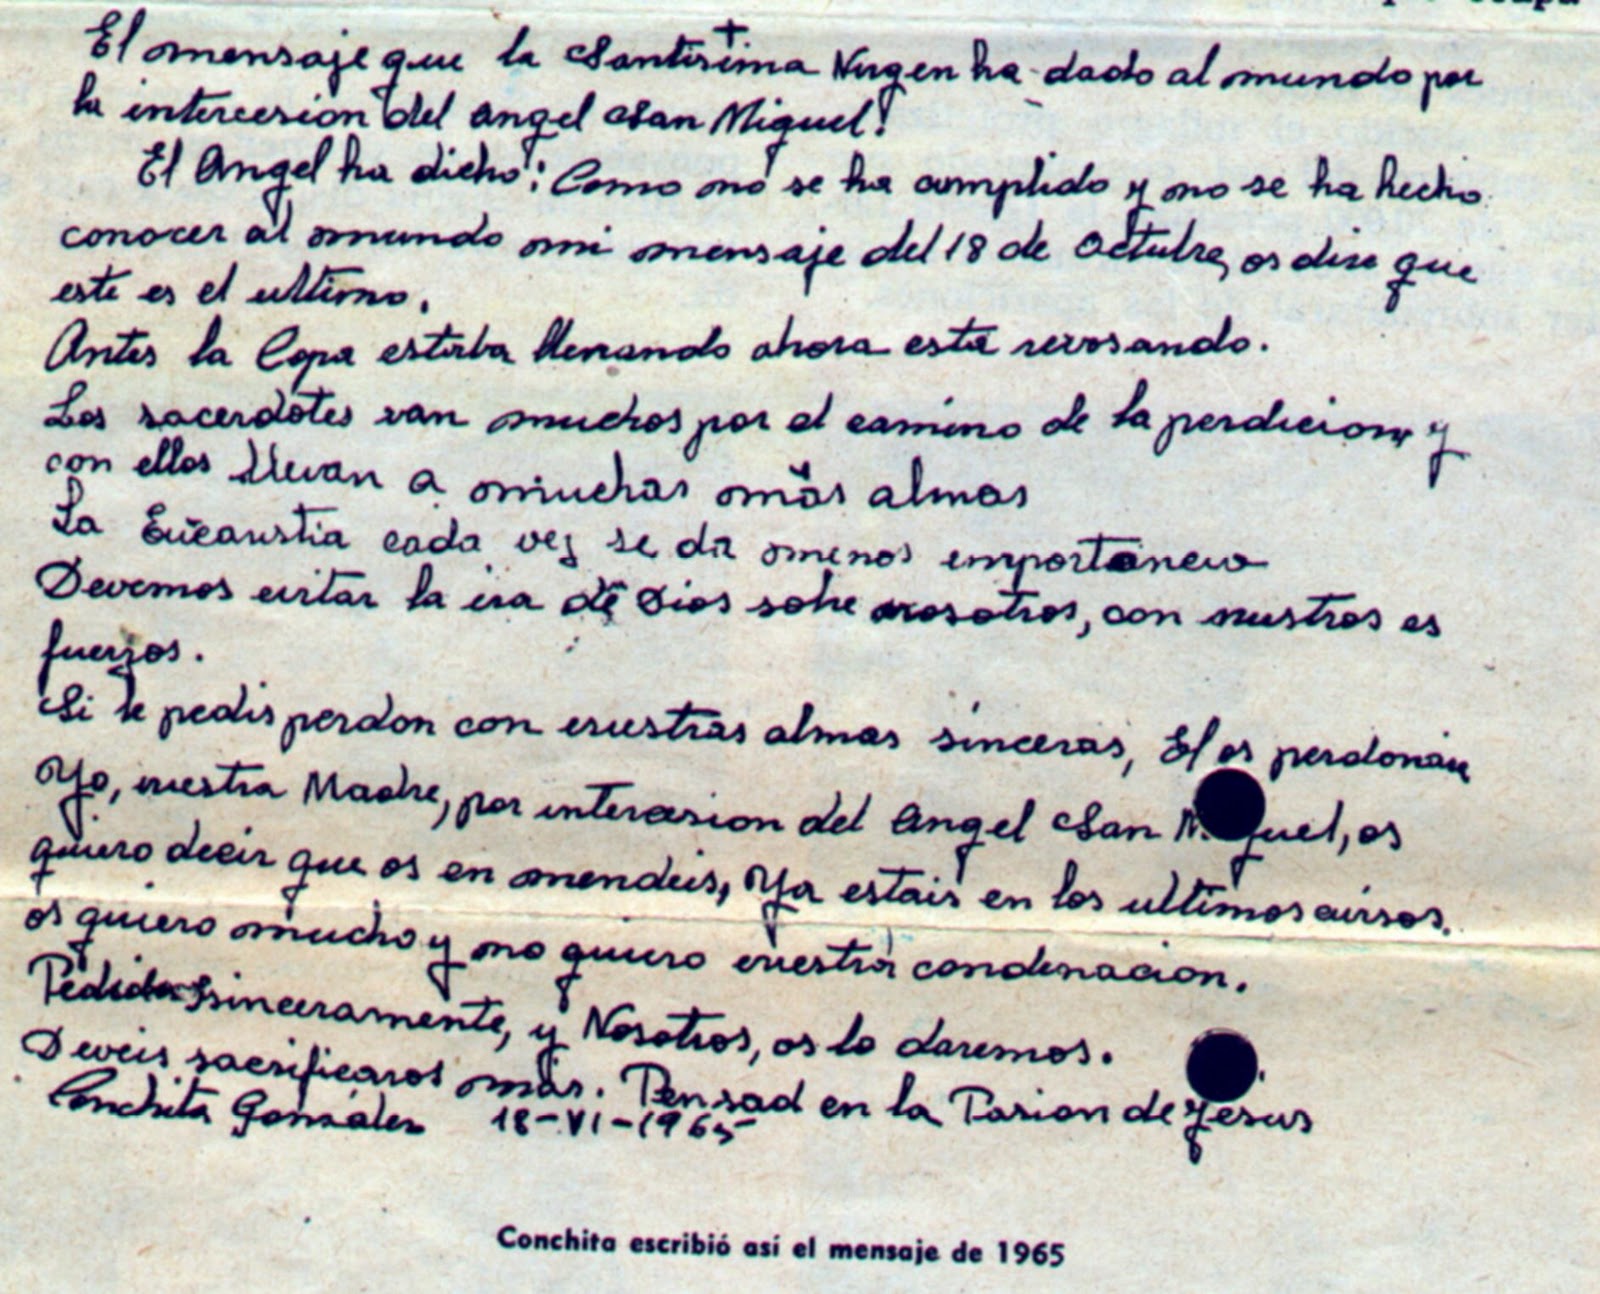 El mensaje que la Santisima Virgen ha dado al mundo por
la intercesion del angel San Miguel!
El Angel ha dicho: Como no se ha cumplido y no se ha hecho
conocer al mundo mi mensaje del 18 de Octubre, os dire que
este es el ultimo.
Antes la Copa estaba llenando ahora está revosando.
Los sacerdotes van muchos por el camino de la perdicion y
con ellos llevan a muchas más almas
La Eucaristia cada vez se da menos importancia
Devemos evitar la ira de Dios sobre nosotros, con nuestros es
fuerzos.
Si le pedis perdon con vuestras almas sinceras, El os perdonará
Yo, vuestra Madre, por intercesion del angel San Miguel, os
quiero decir que os en mendeis, Ya estais en los ultimos avisos.
os quiero mucho y no quiero vuestra condenacion.
sinceramente, y Nosotros, os lo daremos.
Deveis sacrificaros más. Pensad en la Pasion de Jesus
Conchita González 18-VI-1965
Conchita escribió así el mensaje de 1965